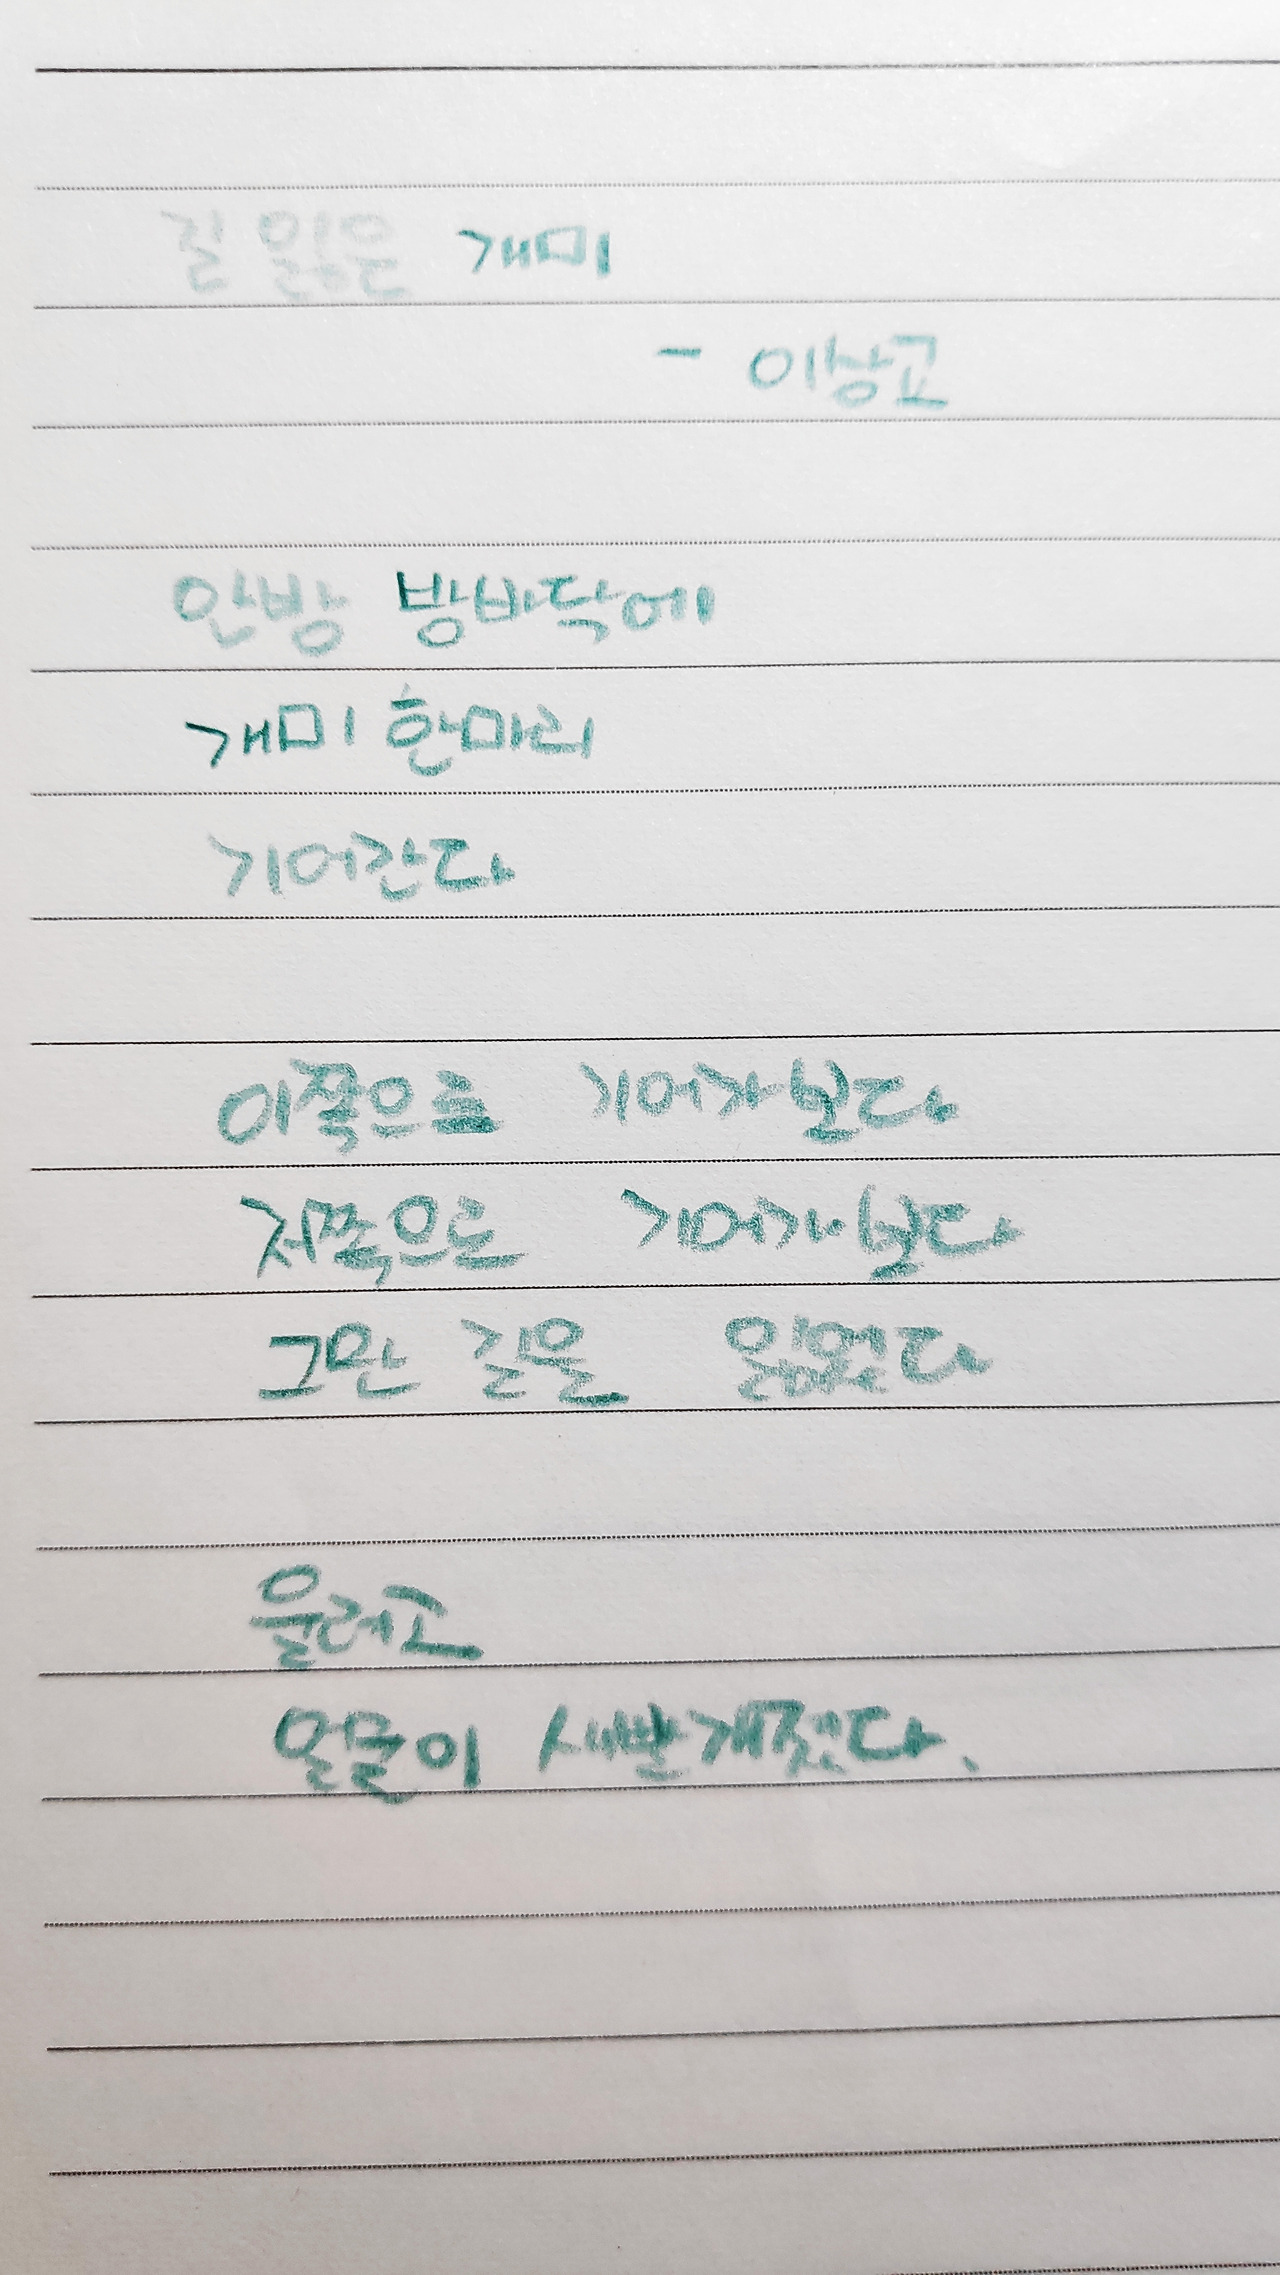 길 잃은 개미
- 이상교
안방 방바닥에
개미 한마리
기어간다
이쪽으로 기어가 보다
저쪽으로 기어가 보다
그만 길을 잃었다
울려고
얼굴이 새빨개졌다.